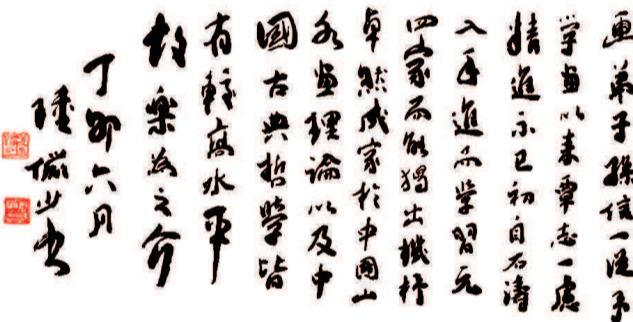 画弟子孫信一從予
学画以来覃志一慮
精進不已初自石濤
入手進而学習元
四家而能獨出機杼
卓然成家於中国山
水画理論以及中
國古典哲學皆
有較高水平
故樂為之介
丁卯六月
陸儼少書